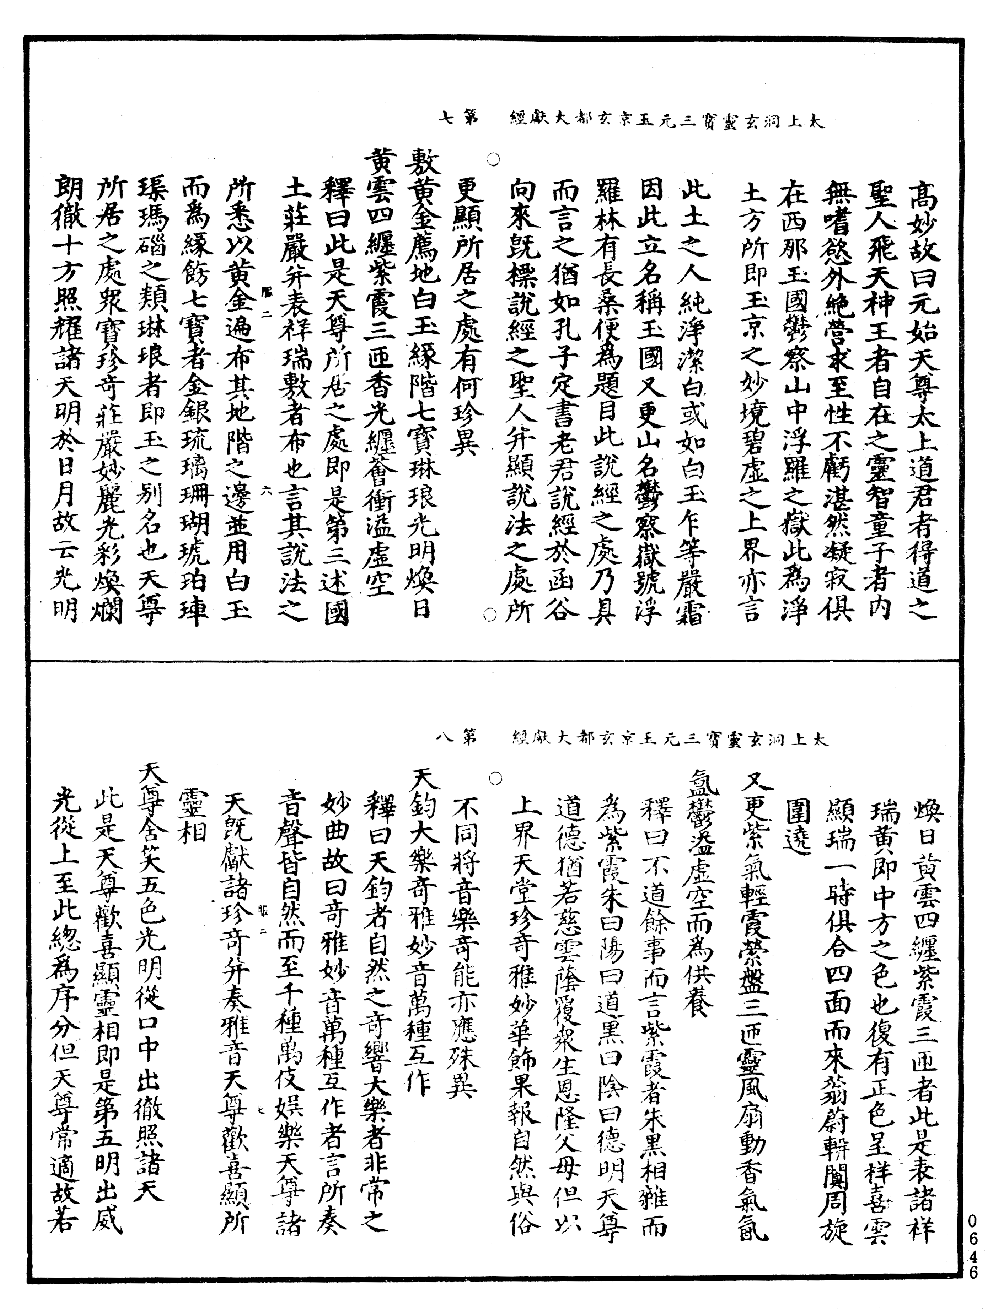 太上洞玄靈寶三元玉京玄都大獻經　第七
高妙故曰元始天尊太上道君者得道之
聖人飛天神王者自在之靈智童子者內
無嗜慾外絶營求至性不虧湛然凝寂俱
在西那玉國鬱察山中浮羅之嶽此為淨
土方所即玉京之妙境碧虛之上界亦言
此土之人純淨潔白或如白玉乍等嚴霜
因此立名稱玉國又更山名鬱察嶽號浮
羅林有長桑便為題目此說經之處乃具
而言之猶如孔子定書老君說經於函谷
向來旣標說經之聖人并顯說法之處所
○　○
更顯所居之處有何珍異
敷黃金薦地白玉緣階七寶琳琅光明煥日
黃雲四纏紫霞三匝香光纏薈衝溢虛空
釋曰此是天尊所居之處即是第三述國
土莊嚴并表祥瑞敷者布也言其說法之
所悉以黃金遍布其地階之邊並用白玉
而為緣飭七寶者金銀琉璃珊瑚琥珀硨
璖瑪碯之類琳琅者即玉之別名也天尊
所居之處衆寶珍奇莊嚴妙麗光彩煥爛
朗徹十方照耀諸天明於日月故云光明
二
六
太上洞玄靈寶三元玉京玄都大獻經　第八
煥日黃雲四纏紫霞三匝者此是表諸祥
瑞黃即中方之色也復有正色呈祥喜雲
顯瑞一時俱合四面而來蓊蔚輧闐周旋
圍遶
又更紫氣輕霞縈盤三匝靈風扇動香氣氤
氳鬱溢虛空而為供養
釋曰不道餘事而言紫霞者朱黑相雜而
為紫霞朱曰陽曰道黑曰陰曰德明天尊
道德猶若慈雲蔭覆衆生恩隆父母但以
上界天堂珍奇雅妙華飾果報自然與俗
○
不同將音樂奇能亦應殊異
天鈞大樂奇雅妙音萬種互作
釋曰天鈞者自然之奇響大樂者非常之
妙曲故曰奇雅妙音萬種互作者言所奏
音聲皆自然而至千種萬伎娛樂天尊諸
天旣獻諸珍奇并奏雅音天尊歡喜顯所
靈相
天尊含笑五色光明從口中出徹照諸天
此是天尊歡喜顯靈相即是第五明出威
光從上至此總為序分但天尊常適故若
二
七
0646